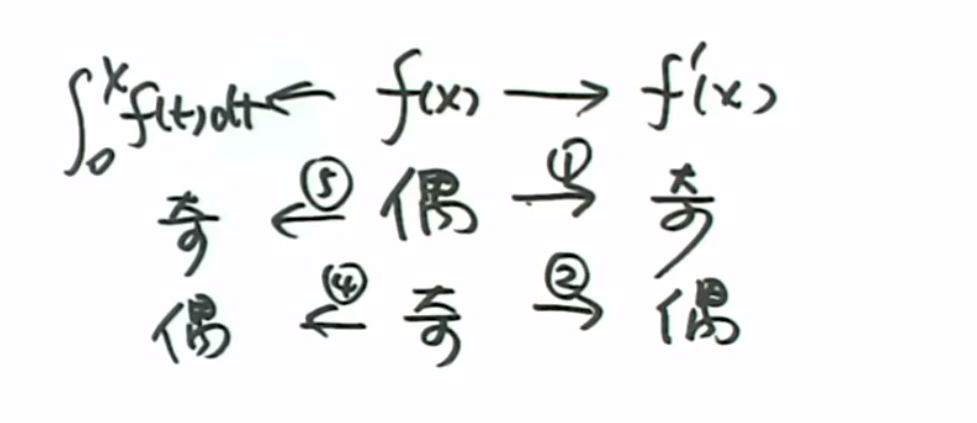 ∫₀ˣf(t)dt ← f(x) → f'(x)
奇 ←⑤ 偶 ①→ 奇
偶 ←④ 奇 ②→ 偶